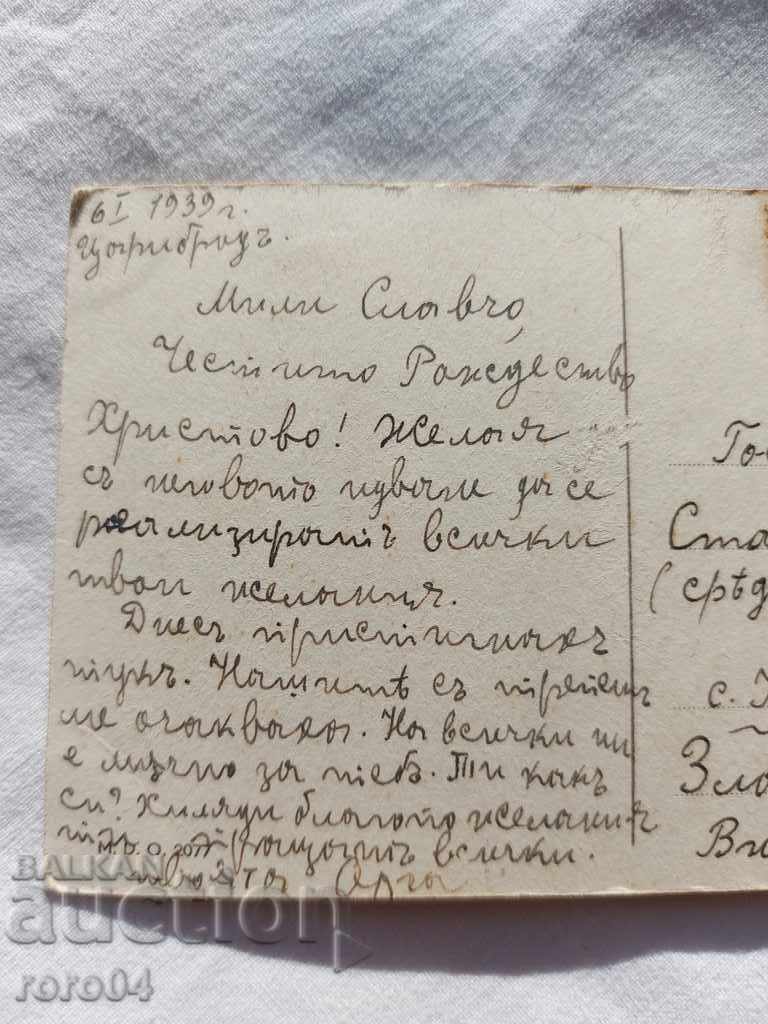 6 I 1939 г.
Царибродъ.
Мили Славчо,
Честито Рождество
Христово! Желая
съ неговото идване да се
реализиратъ всички
твои желания.
Днесъ пристигнахъ
тукъ. Нашитѣ съ трепетъ
ме очакваха. На всички ни
е мѫчно за тебъ. Ти какъ
си? Хиляди благопожелания
пращатъ всички.
твоята
Го
Ста
(срѣд
с.
Зла
Ви
BALKAN
auction
roro04